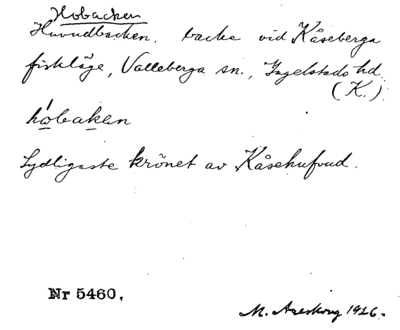 Hobacken
Huvudbacken. backe vid Kåseberga
fiskläge, Valleberga sn., Ingelstads hd.
(K.)
hobaken
Sydligaste krönet av Kåsehufvud.
Nr 5460.
M. Areskoug 1926.